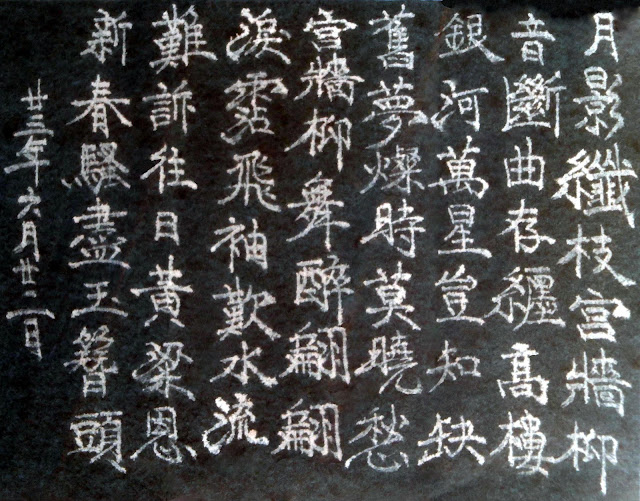 月影纖枝宮牆柳
音斷曲存纏高樓
銀河萬星豈知缺
舊夢燦時莫曉愁
宮牆柳舞醉翩翩
淚霑飛袖歎水流
難訴往日黃粱恩
新春騷盡玉簪頭
廿三年六月廿二日